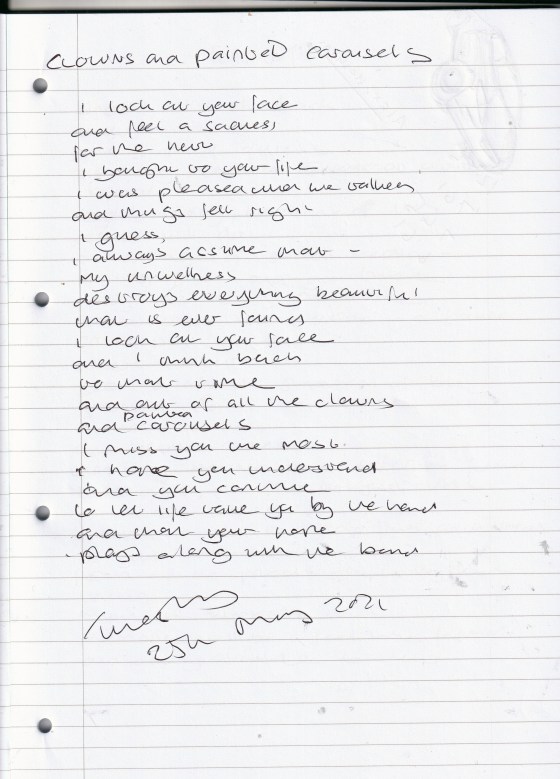 CLOWNS and painted carousels
i look at your face
and feel a sadness,
for the hurt
i bought to your life
i was pleased when we talked
and things felt right
i guess,
i always assume that -
my unwellness
destroys everything beautiful
that is ever found
i look at your face
and i think back
to that time
and out of all the clowns
painted
and carousels
i miss you the most.
i hope you understand
and you continue
to let life take you by the hand
and that your
plays along with the band
25th May 2021